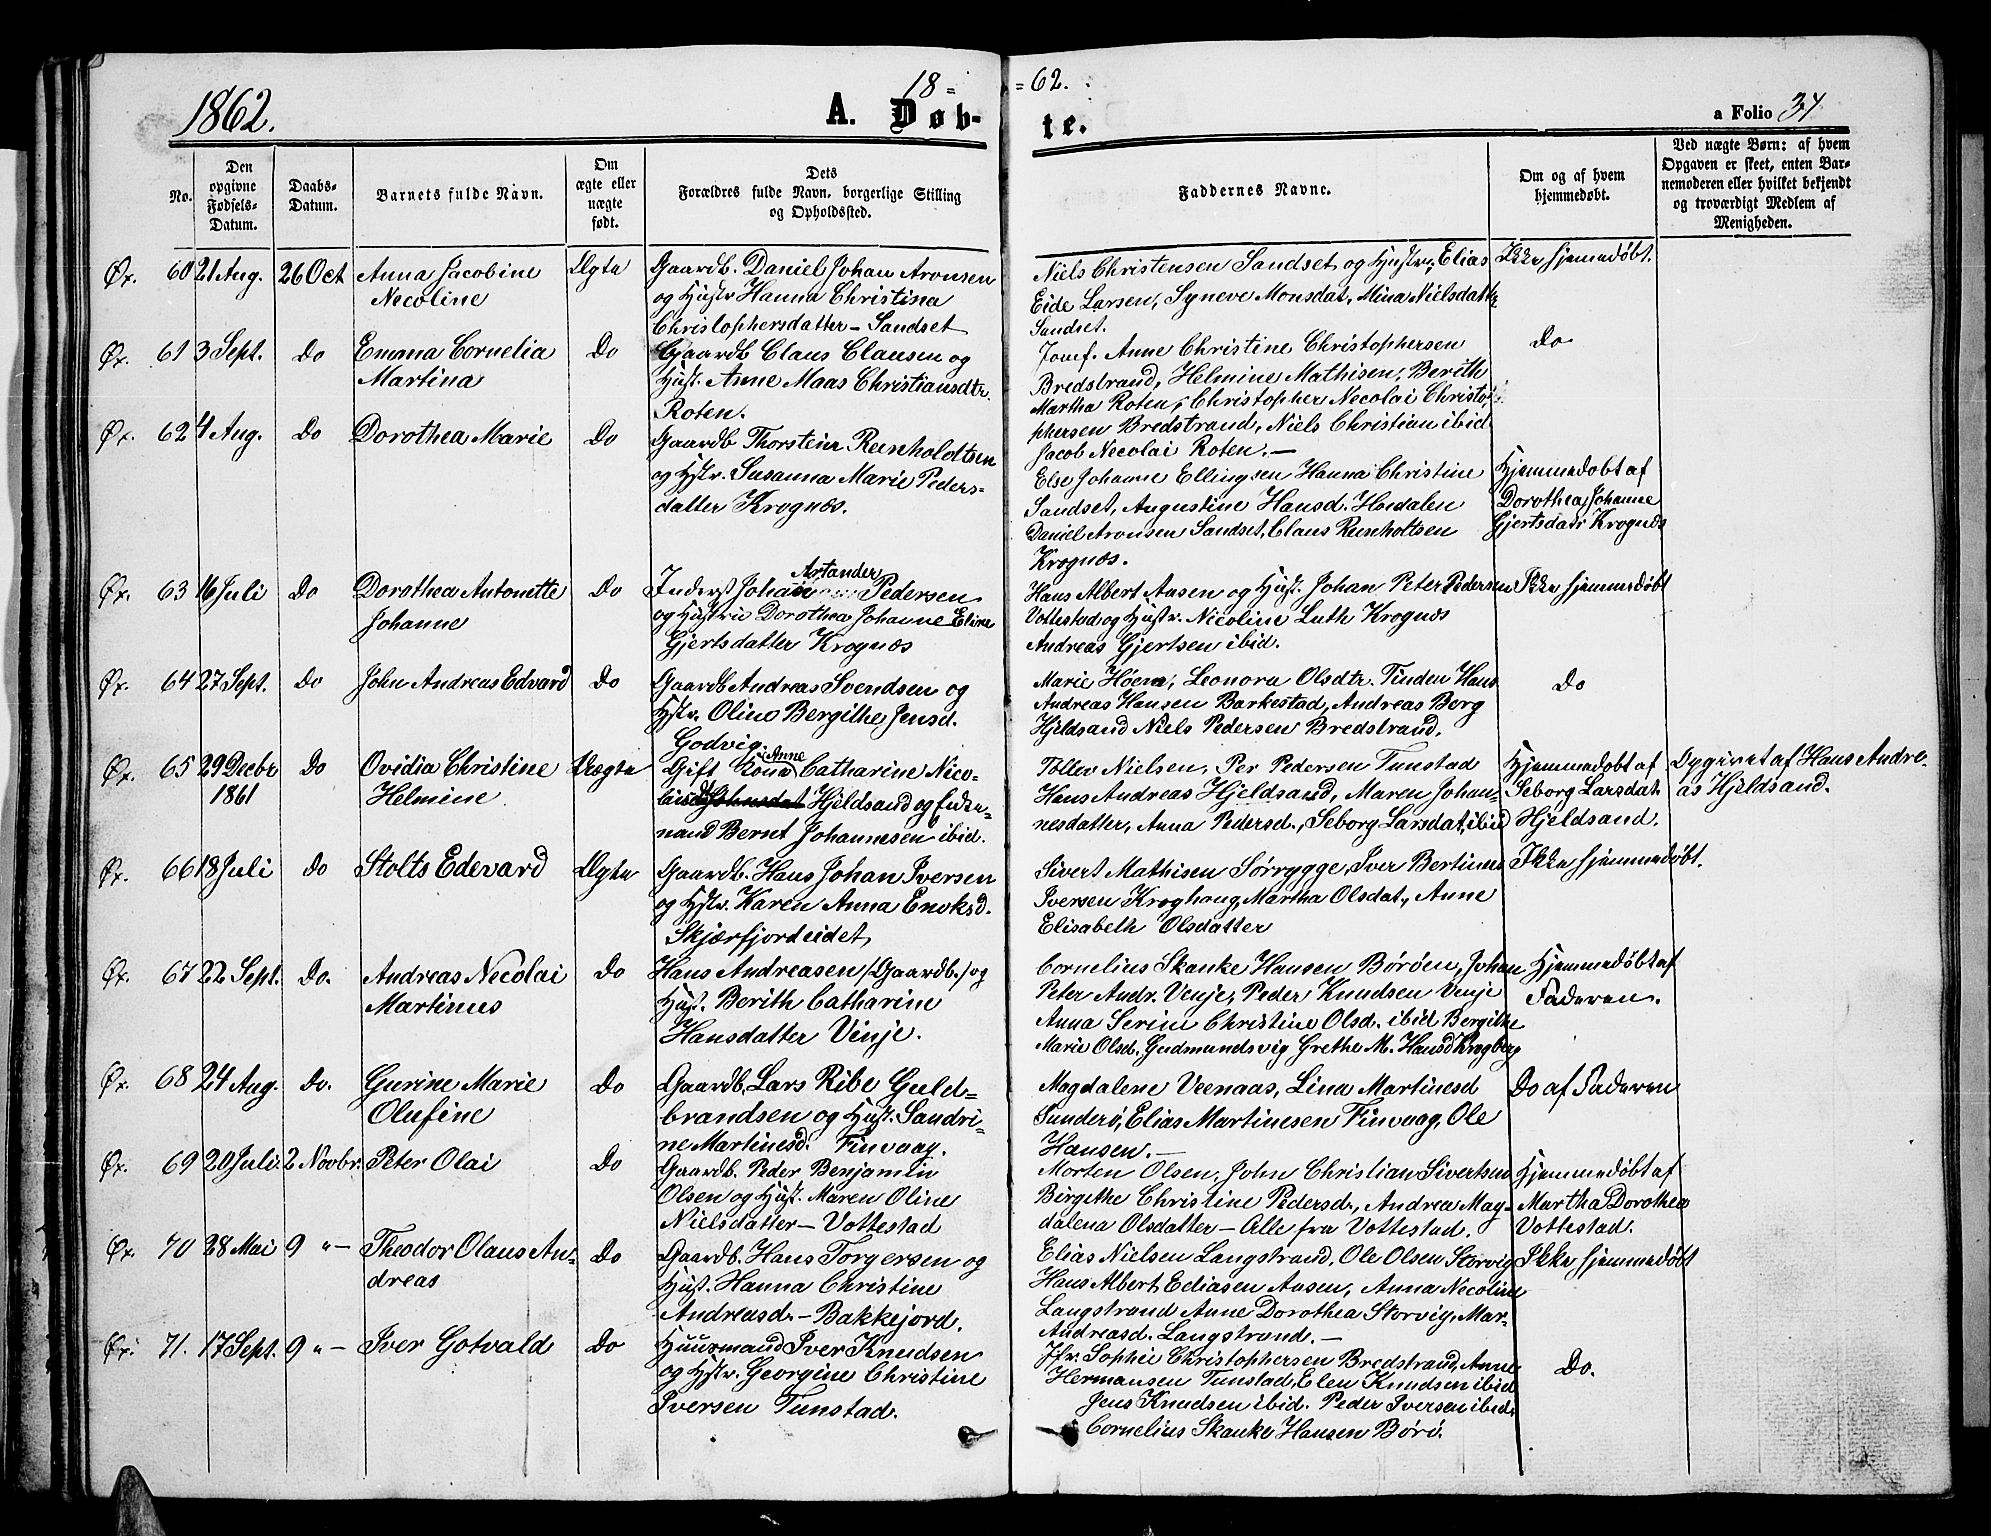 1862.
18 =
= 62.
A. Døb-
te.
a Folio 34
No.
Den
opgivne
Fødsels-
Datum.
Daabs-
Datum.
Barnets fulde Navn.
Om
ægte eller
uægte
født.
Dets
Forældres fulde Navn, borgerlige Stilling
og Opholdssted.
Faddernes Navne.
Om og af hvem
hjemmedøbt.
Ved uægte Børn: af hvem
Opgaven er skeet, enten Bar-
nemoderen eller hvilket bekjendt
og troværdigt Medlem af
Menigheden.
Øx. 60 21 Aug. 26 Oct Anna Jacobine
Necoline
Ægte
Gaardb. Daniel Johan Aronsen
og Hustr Hanna Christina
Christophersdatter - Sandset
Niels Christensen Sandset og Hustru, Elias
Eide Larsen, Syneve Monsdat, Mina Nielsdattr
Sandset.
Ikke hjemmedøbt.
Øx. 61 3 Sept. Do Emma Cornelia
Martina
Do
Gaardb Claus Clausen og
Hust. Anne Maas Christiansdtr.
Roten.
Jomf. Anne Christine Christophersen
Bredstrand, Helmine Mathisen, Berith
Martha Roten, Christopher Necolai Christo-
phersen Bredstrand, Niels Christian ibid
Jacob Necolai Roten. -
Do
Øx. 62 4 Aug. Do Dorothea Marie Do
Gaardb Thorstein Reenholdtsen
og Hstr. Susanna Marie Peders-
datter Krognæs.
Else Johanne Ellingsen Hanna Christine
Sandset, Augustine Hansd. Hondalen
Daniel Aronsen Sandset, Claus Reenholtsen
Krognæs.
Hjemmedøbt af
Dorothea Johanne
Gjertsdatr Krognæs
Øx. 63 16 Juli Do Dorothea Antonette
Johanne
Do
Artander
Inderst Johan Pedersen
og Hustrue Dorothea Johanne Eline
Gjertsdatter Krognæs
Hans Albert Aasen og Hust. Johan Peter Pedersen
Vottestad og Hustr. Nicoline Luth Krognæs
Andreas Gjertsen ibid.
Ikke hjemmedøbt
Øx. 64 27 Sept. Do John Andreas Edvard Do
Gaardb Andreas Svendsen og
Hstr. Oline Bergithe Jensd.
Godvig.
Marie Høen, Leonora Olsdtr. Tinden Hans
Andreas Hansen Barkestad, Andreas Borg
Hjeldsand Niels Pedersen Bredstrand.
Do
Øx. 65 29 Decbr
1861
Do Ovidia Christine
Helmine
Uægte
Anne
Gift Kone Catharine Nico-
Hjeldsand og Enke-
mand Bernt Johannesen ibid.
Tollev Nielsen, Per Pedersen Tunstad
Hans Andreas Hjeldsand, Maren Johan-
nesdatter, Anna Pedersd., Seborg Larsdat, ibid
Hjemmedøbt af
Seborg Larsdat.
Hjeldsand.
Opgivet af Hans Andre-
as Hjeldsand.
Øx. 66 18 Juli Do Stolts Edevard Ægte
Gaardb. Hans Johan Iversen
og Hstr. Karen Anna Enoksd.
Skjærfjordeidet
Sivert Mathisen Sørrygge, Iver Bertinus
Iversen Kroghoug Martha Olsdat., Anne
Elisabeth Olsdatter
Ikke hjemmedøbt.
Øx. 67 22 Sept. Do. Andreas Necolai
Martinus
Do
Hans Andreasen /Gaardb./ og
Hust. Berith Catharine
Hansdatter Vinje.
Cornelius Skanke Hansen Børøen, Johan
Peter Andr. Venje, Peder Knudsen Venje
Anna Serine Christine Olsd. ibid Bergithe
Marie Olsd. Gudmundsvig Grethe M. Hansd Krogberg
Hjemmedøbt af
Faderen.
Øx. 68 24 Aug. Do. Gurine Marie
Olufine
Do
Gaardb. Lars Ribe Guld-
brandsen og Hust. Sandri-
ne Martinesd. Finvaag.
Magdalene Veenaas, Lina Martinesd
Sunderö, Elias Martinesen Finvaag, Ole
Hansen. -
Do af Faderen
Øx. 69 20 Juli. 2 Novbr. Peter Olai Do
Gaardb. Peder Benjamin
Olsen og Hust. Maren Oline
Nielsdatter - Vottestad
Morten Olsen, John Christian Sivertsen
Birgithe Christine Pedersd., Andrea Mag-
dalena Olsdatter - Alle fra Vottestad.
Hjemmedøbt af
Martha Dorothea
Vottestad.
Øx. 70 28 Mai 9 " - Theodor Olaus An-
dreas
Do
Gaardb. Hans Torgersen og
Hust. Hanna Christine
Andreasd. - Bakkejord.
Elias Nielsen Langstrand, Ole Olsen Storvig
Hans Albert Ediasen Aasen, Anna Necoline
Langstrand Anne Dorothea Storvig, Mar-
Andreasd. Langstrand. -
Ikke hjemmedøbt
Øx. 71. 17 Sept. 9 " - Iver Gotvald Do
Huusmand Iver Knudsen
og Hstr. Georgine Christine
Iversen Tunstad.
Jfr. Sophie Christophersen Bredstrand, Anne
Hermansen Tunstad, Elen Knudsen ibid
Jens Knudsen ibid. Peder Iversen ibid,
Cornelius Skanke Hansen Børö.
Do.